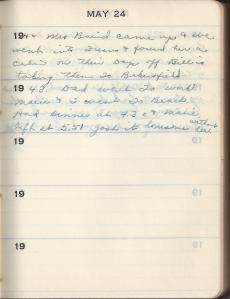 MAY 24
19 Mrs Baird came up & we
went into Town & found her a
on their Day off Billie's
taking them to Bakersfield.
19 48. Dad went to work
Marie & I went to Beach
Had dinner at 4.30 & Marie
left at 5.50 gosh its lonesome without
her
19
19
19